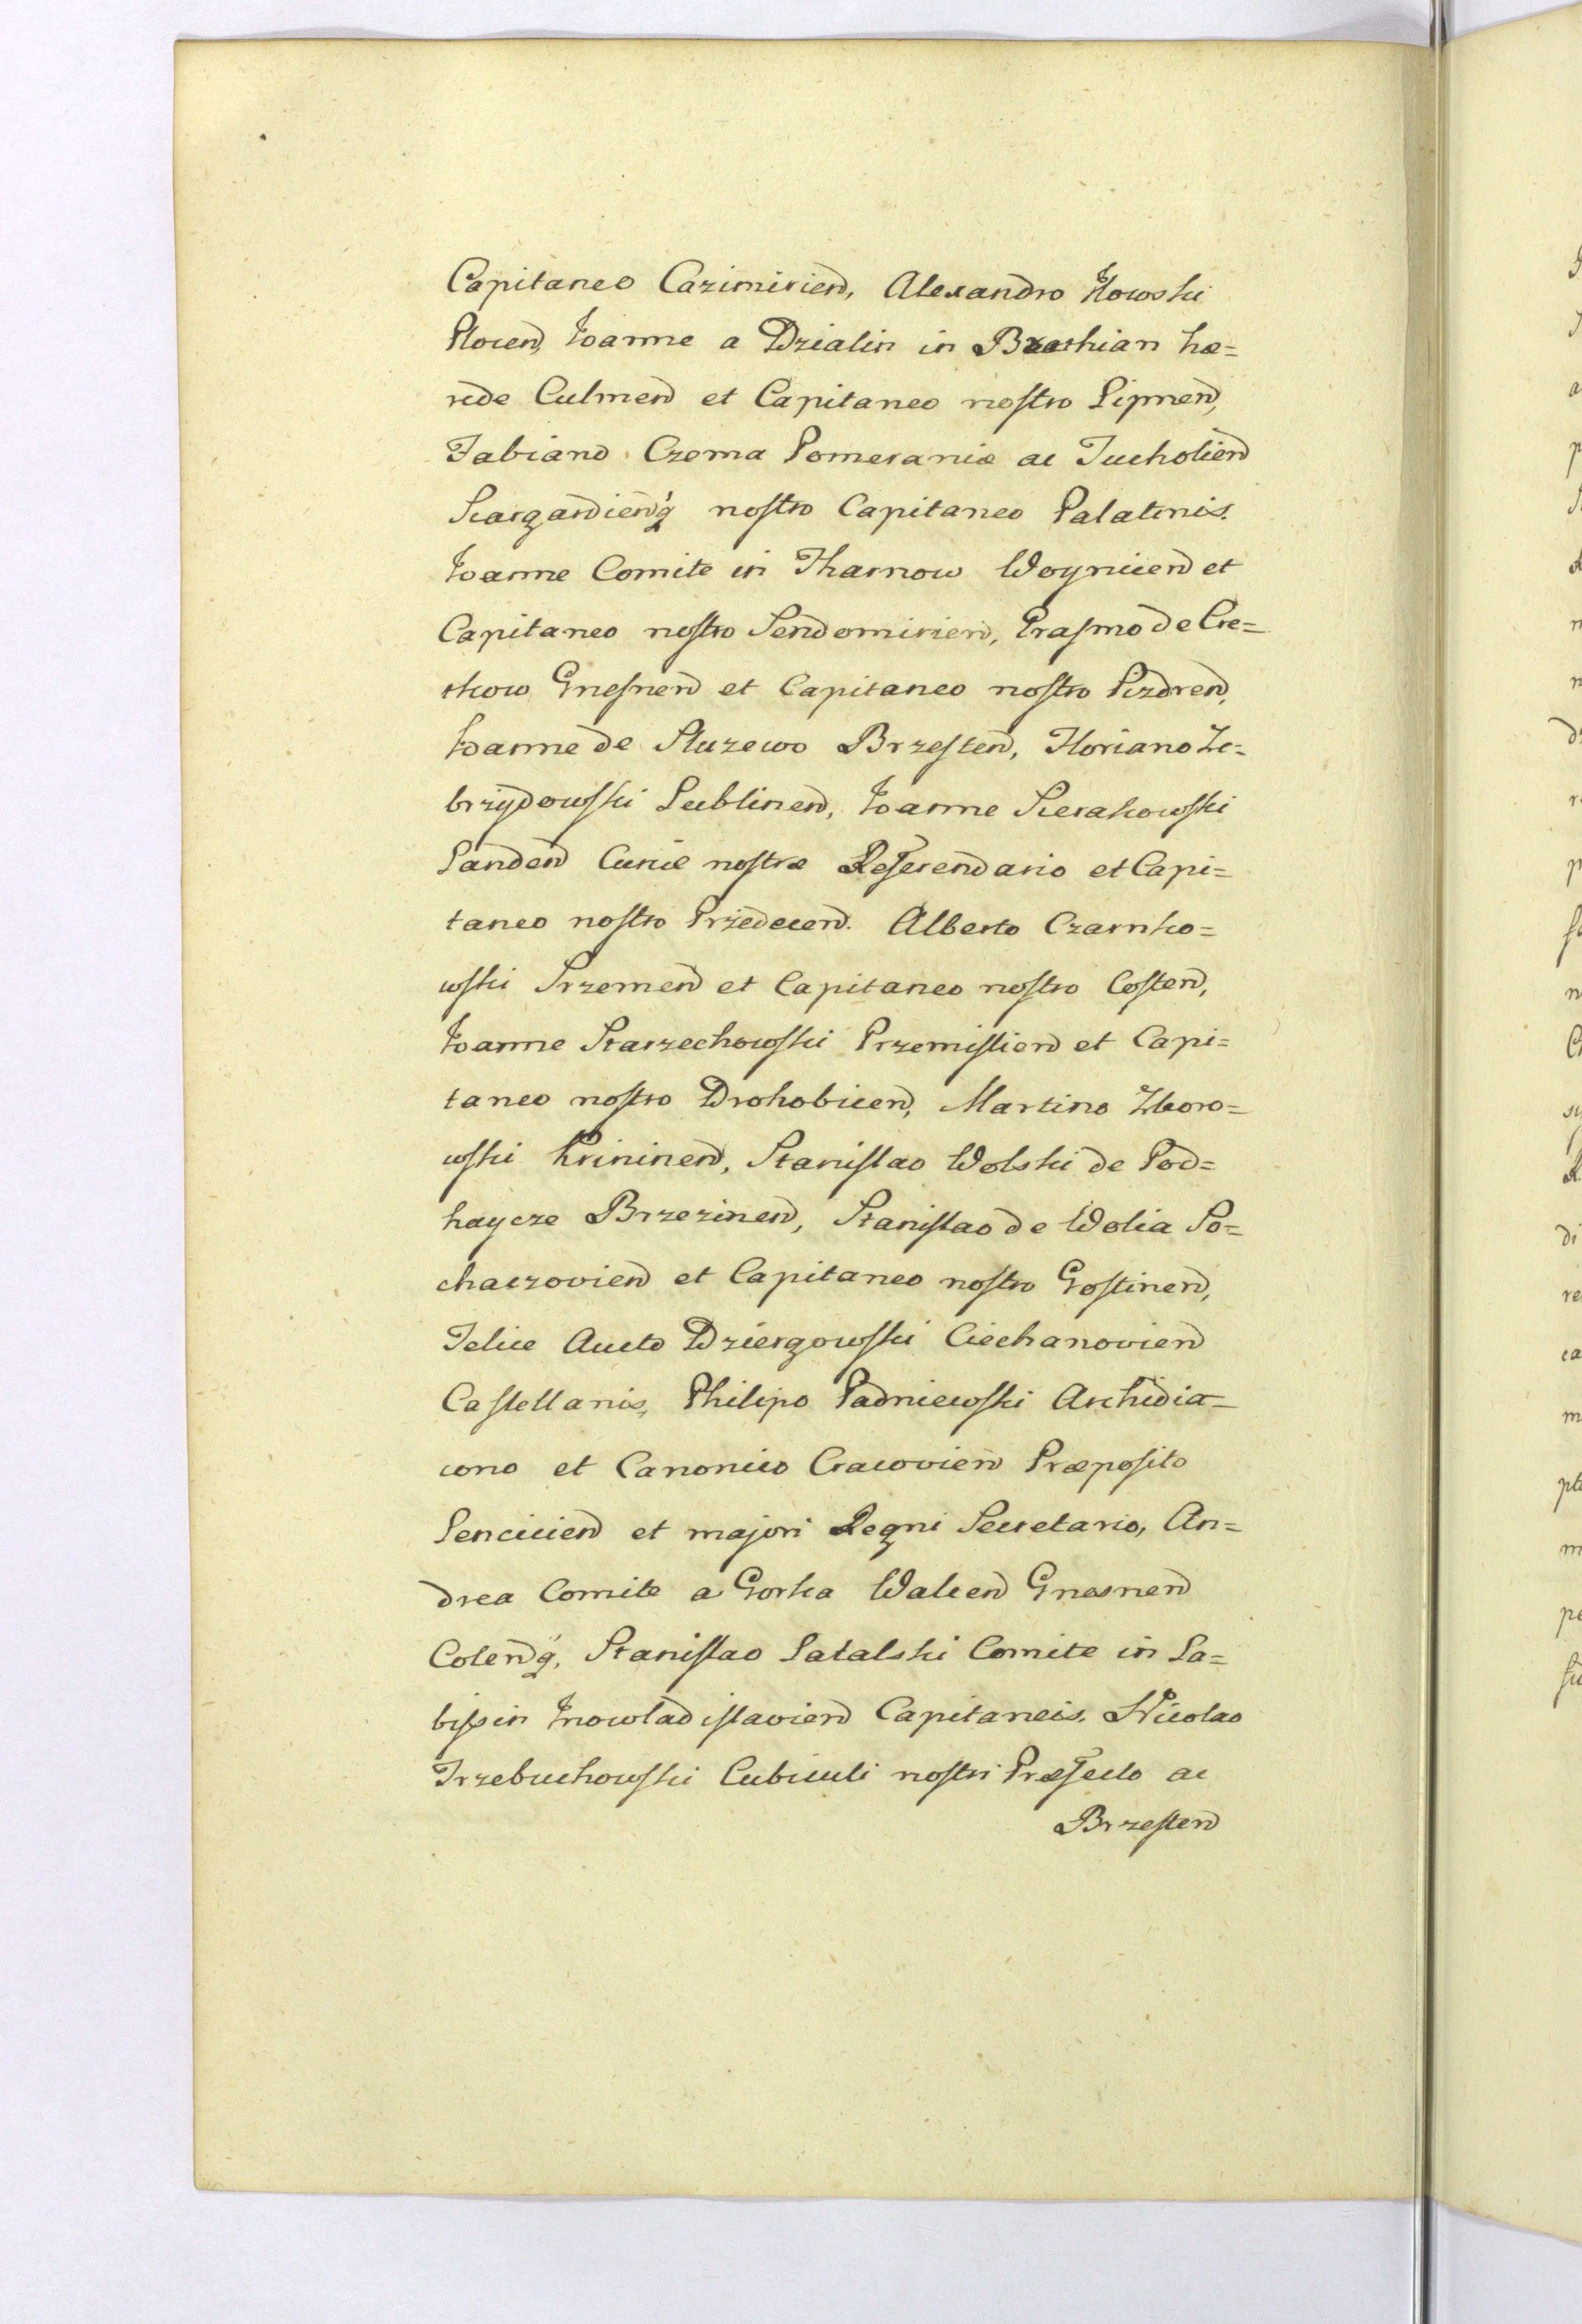 Capitaneo Cazimirien̄, Alexandro Ilowski
Plocen̄, Joanne a Dzialin in Brathian hæ=
rede Culmen̄ et Capitaneo nostro Lipnen̄,
Fabiano Czema Pomeraniæ ac Tucholien̄
Stargardien̄q́ nostro Capitaneo Palatinis.
Joanne Comite in Tharnow Woynicen̄ et
Capitaneo nostro Sendomirien̄, Erasmo de Cre=
tkow Gnesnen̄ et Capitaneo nostro Pizdren̄,
Joanne de Sluzewo Brzesten̄, Floriano Ze=
brzÿdowski Lublinen̄, Joanne Sierakowski
Landen̄ Curiæ nostræ Referendario et Capi=
taneo nostro Przedecen̄. Alberto Czarnko=
wski Srzemen̄ et Capitaneo nostro Costen̄,
Joanne Starzechowski Przemislien̄ et Capi=
taneo nostro Drohobicen̄, Martino Zboro=
wski Krininen̄, Stanislao Wolski de Pod=
haycze Brzezinen̄, Stanislao de Wolia So=
chaczovien̄ et Capitaneo nostro Gostinen̄,
Felice Aucto Dziergowski Ciechanovien̄
Castellanis, Philipo Padniewski Archidia=
cono et Canonico Cracovien̄ Præposito
Lencicien̄ et majori Regni Secretario, An=
drea Comite a Gorka Walcen̄ Gnesnen̄
Colen̄q́, Stanislao Latalski Comite in La=
bissin Inowladislavien̄ Capitaneis. Nicolao
Trzebuchowski Cubiculi nostri Præfecto ac
Brzesten̄